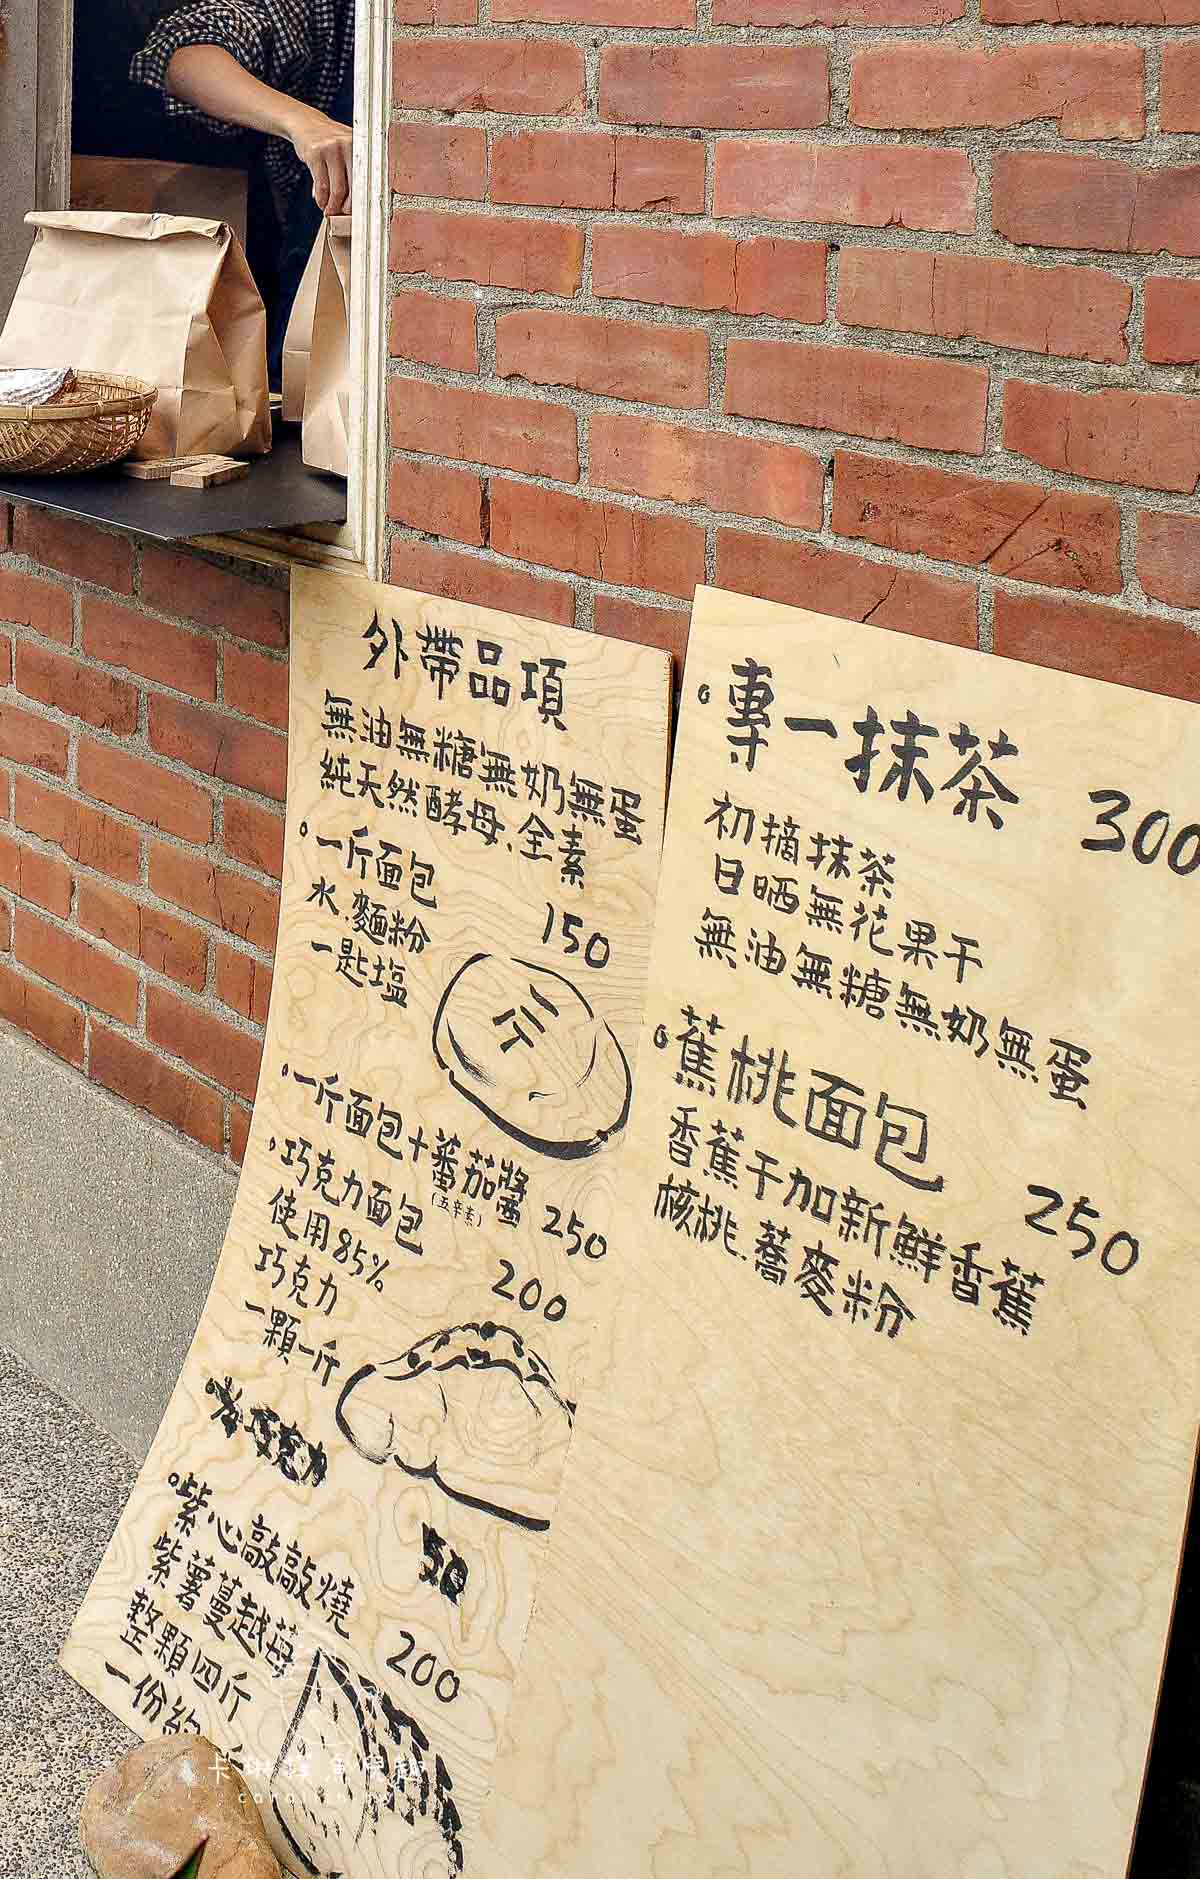 外帶品項
無油無糖無奶無蛋
純天然酵母、全素
一斤面包
150
水、麵粉
一匙塩
一斤
一斤面包+蕃茄醬
(五辛素)
250
巧克力面包
使用85%
200
巧克力
一顆一斤
巧克力
50
紫心敲敲燒
紫薯蔓越莓
200
整顆四斤
一份約
專一抹茶
300
初摘抹茶
日晒無花果干
無油無糖無奶無蛋
蕉桃面包
250
香蕉干加新鮮香蕉
核桃、蕎麥粉